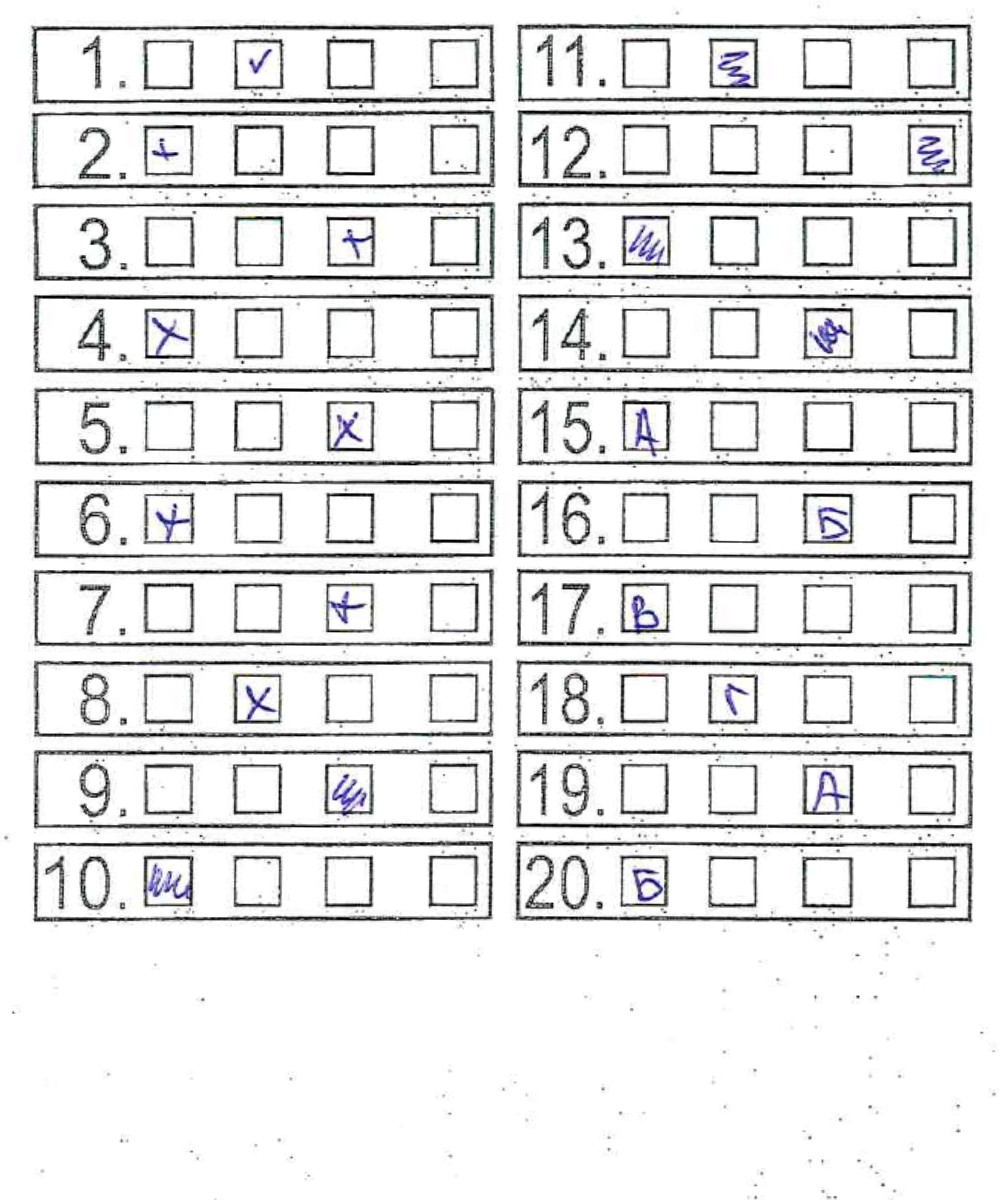 1. ✓
2. +
3. +
4. X
5. X
6. +
7. +
8. X
9.
10.
11.
12.
13.
14.
15. А
16. Б
17. В
18. Г
19. А
20. Б